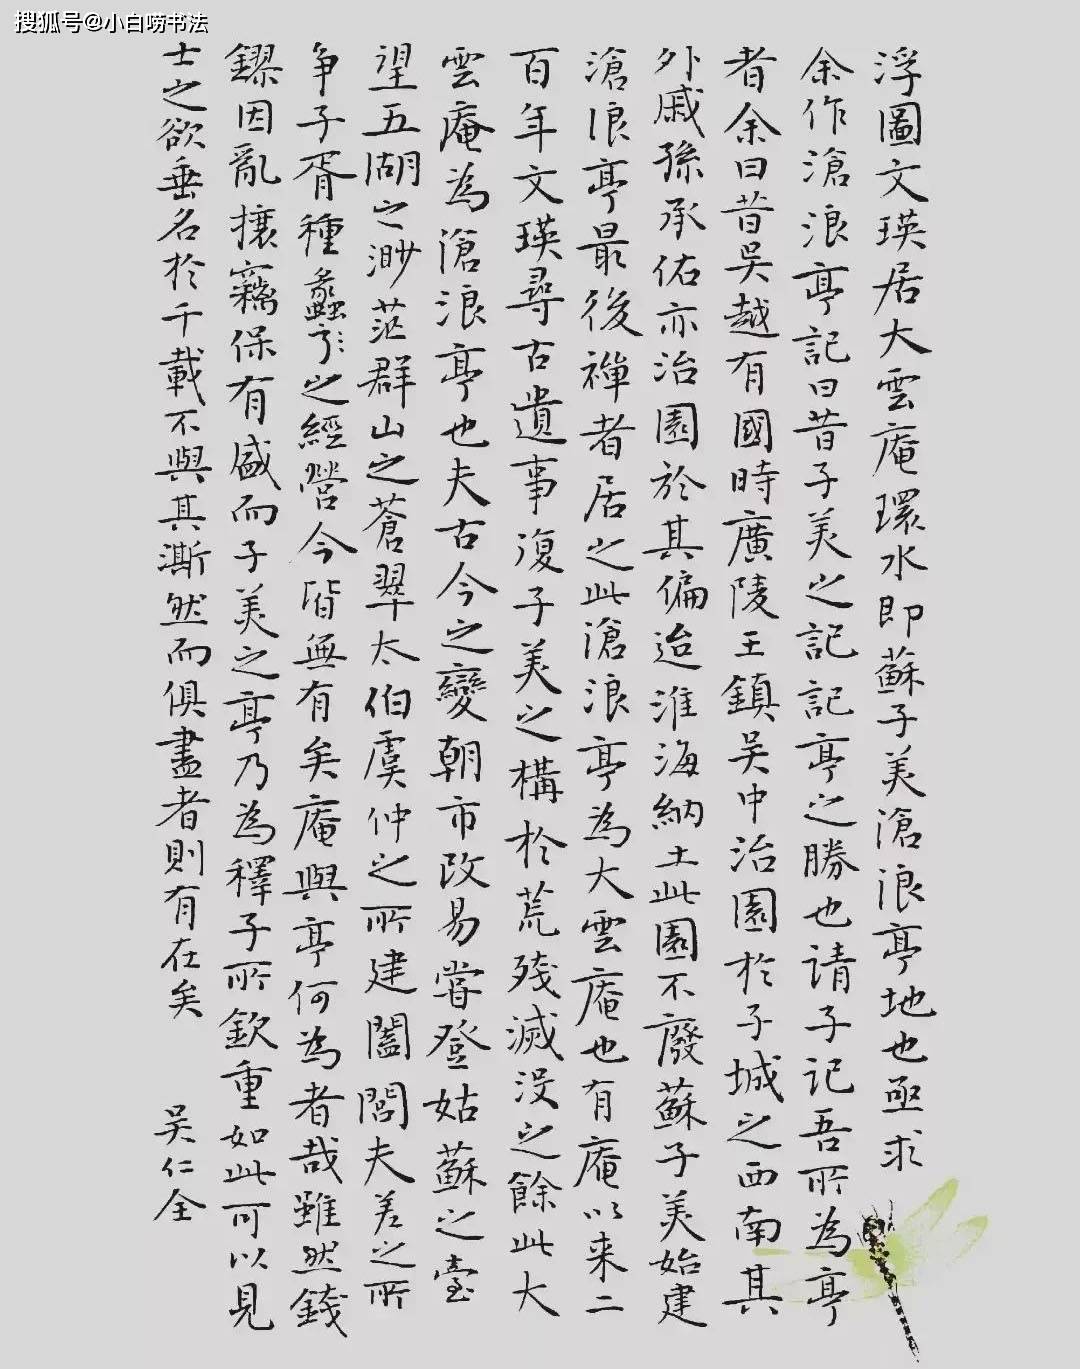 搜狐号@小白唠书法
浮圖文瑛居大雲庵環水即蘇子美滄浪亭地也亟求
余作滄浪亭記曰昔子美之記記亭之勝也请子记吾所為亭
者余曰昔吴越有國時廣陵王鎮吴中治園於子城之西南其
外戚孫承佑亦治園於其偏迨淮海納土此園不廢蘇子美始建
滄浪亭最後禅者居之此滄浪亭為大雲庵也有庵以来二
百年文瑛尋古遺事復子美之構於荒残滅没之餘此大
雲庵為滄浪亭也夫古今之變朝市改易嘗登姑蘇之臺
望五湖之渺茫群山之蒼翠太伯虞仲之所建闔閭夫差之所
争子胥種蠡之經營今皆無有矣庵與亭何為者哉雖然錢
鏐因亂攘竊保有而子美之亭乃為釋子所欽重如此可以見
士之欲垂名於千載不與其澌然而俱盡者則有在矣
吴仁全